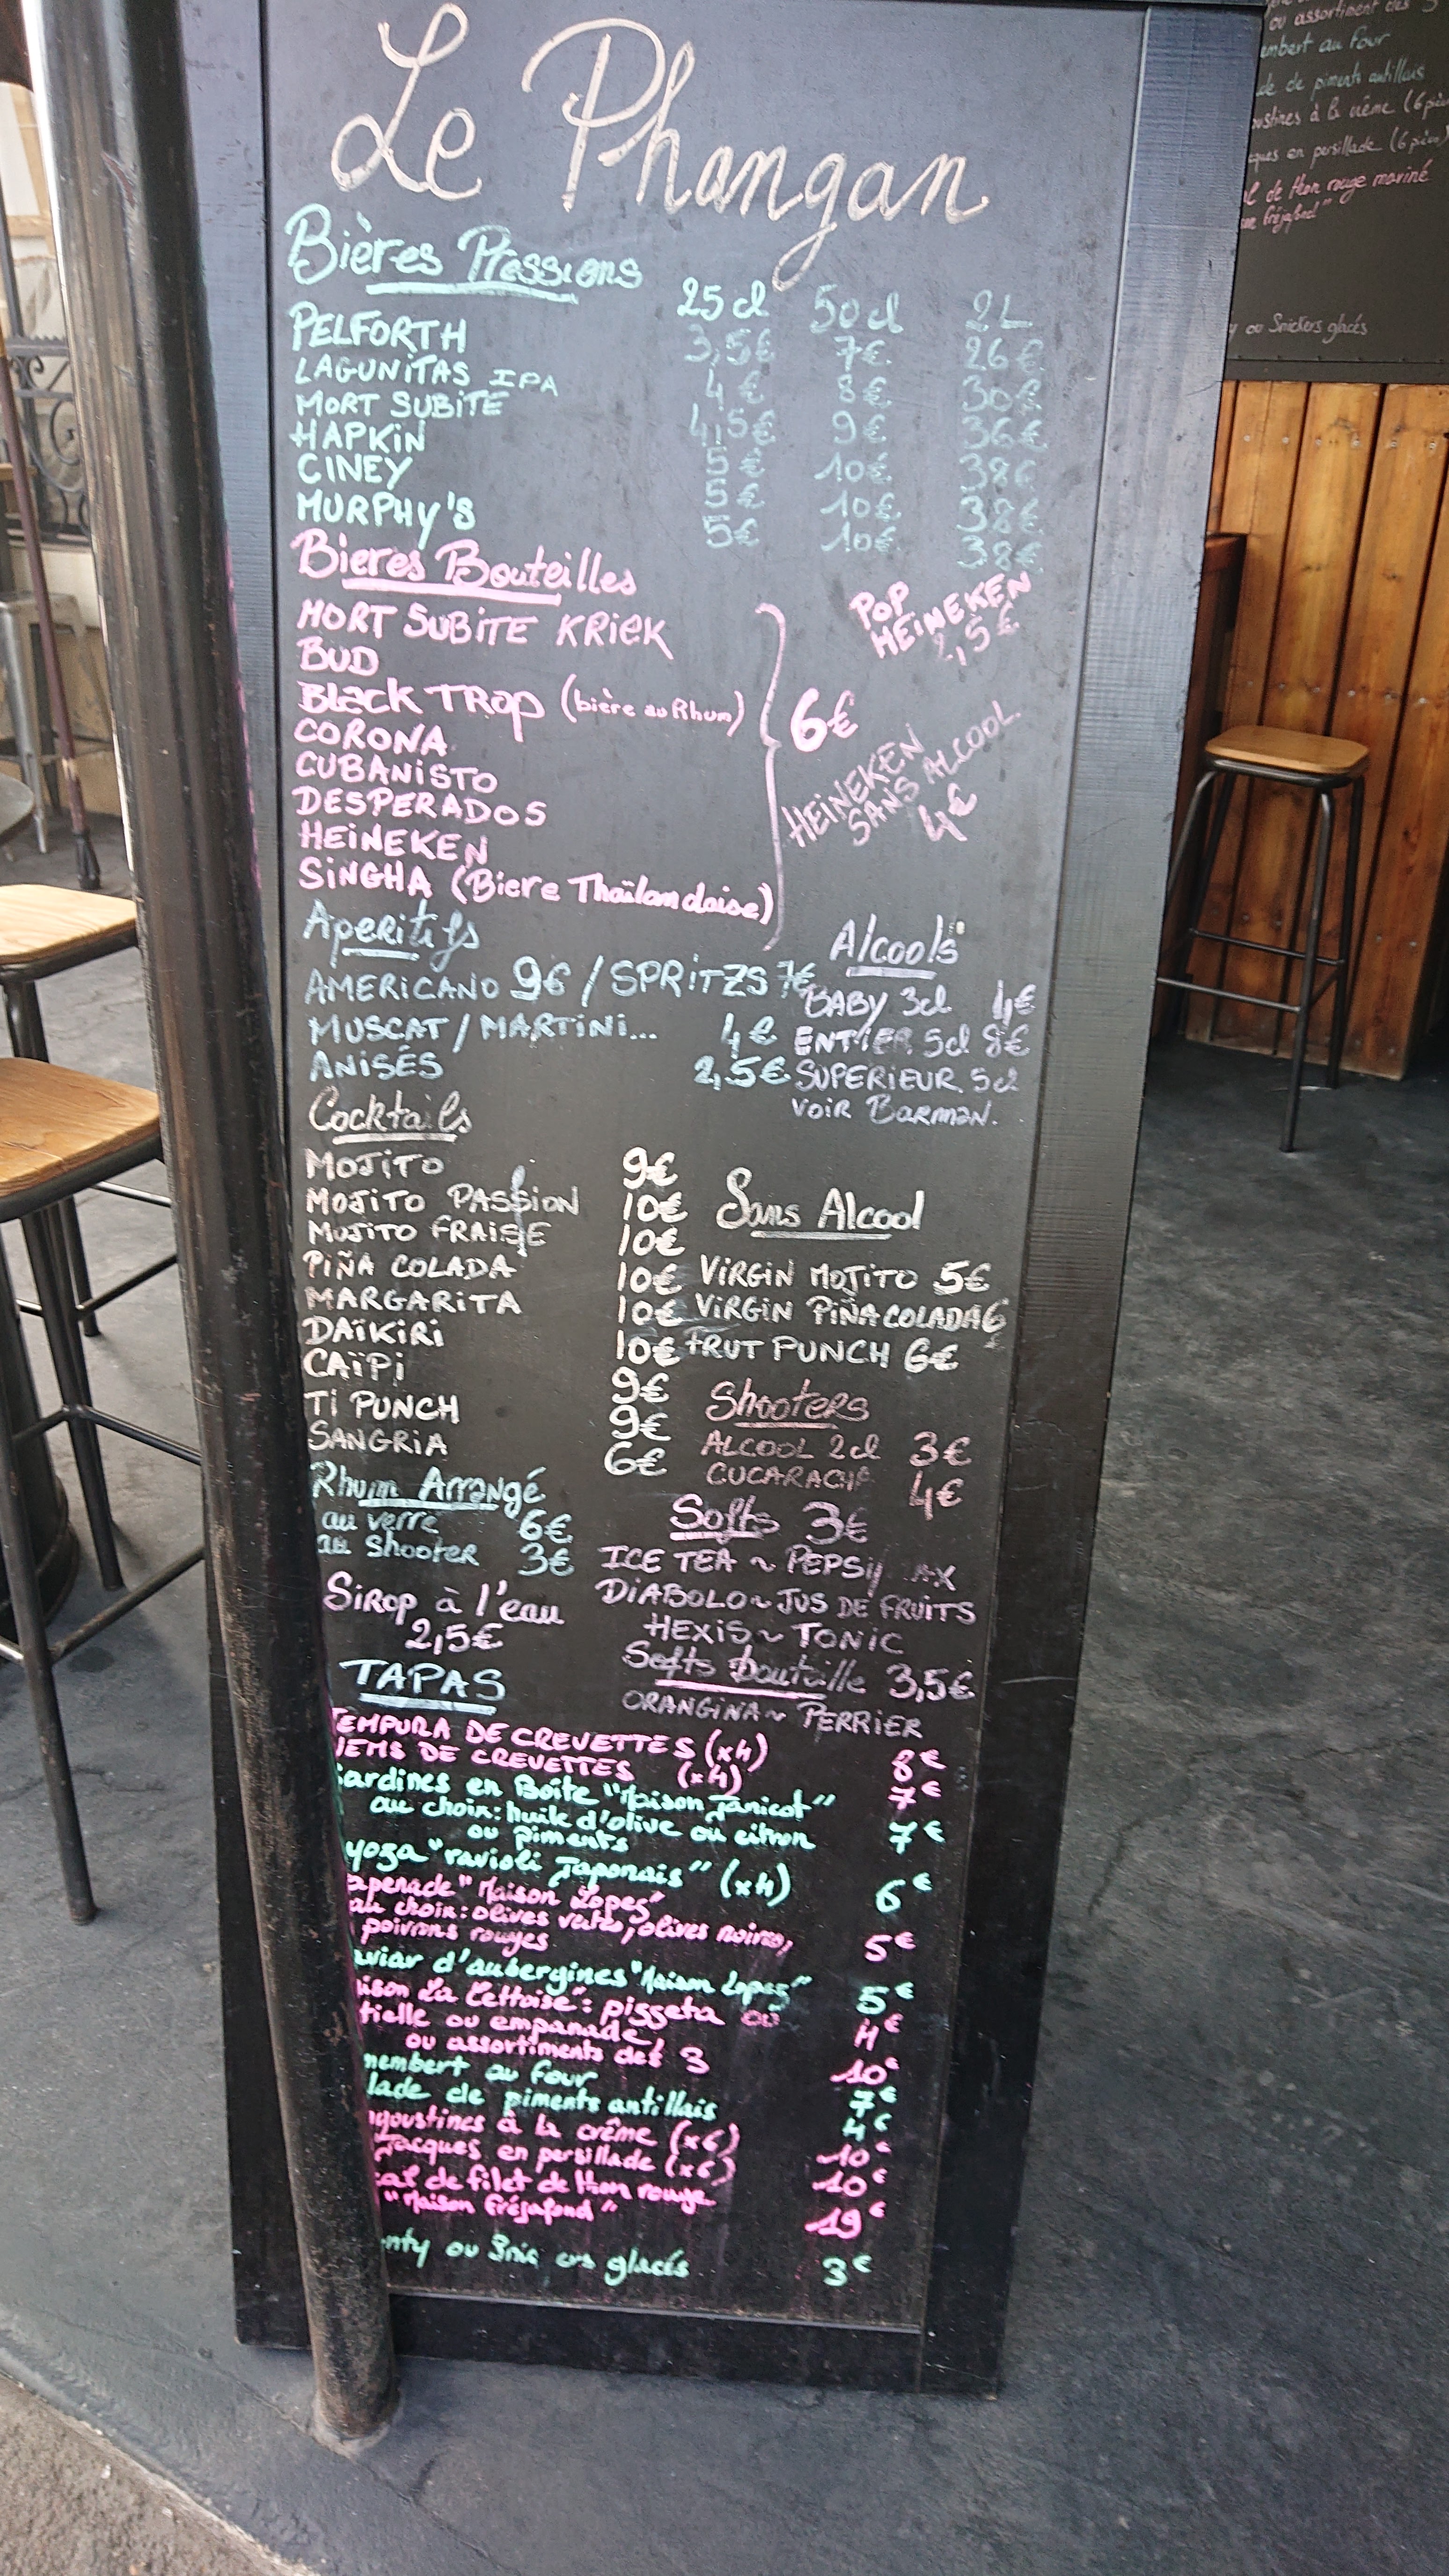 Le Phangan
Bières Pressions
25 cl 50 cl 2L
PELFORTH 3,5€ 7€ 26€
LAGUNITAS IPA 4€ 8€ 30€
MORT SUBITE 4,5€ 9€ 36€
HAPKIN 5€ 10€ 38€
CINEY 5€ 10€ 38€
MURPHY'S 5€ 10€ 38€
Bieres Bouteilles
MORT SUBITE KRIEK
BUD
Black TROP (bière au Rhum)
CORONA
CUBANISTO
DESPERADOS
HEINEKEN
SINGHA (Biere Thaïlandaise)
6€
POP
HEINEKEN
2,5€
HEINEKEN
SANS ALCOOL.
4€
Aperitifs
AMERICANO 9€ / SPRITZS 7€
MUSCAT / MARTINI... 4€
ANISÉS 2,5€
Alcools
BABY 3cl 4€
ENTIER 5cl 8€
SUPERIEUR 5cl
VOIR BARMAN.
Cocktails
MOJITO 9€
MOJITO PASSION 10€
MOJITO FRAISE 10€
PIÑA COLADA 10€
MARGARITA 10€
DAÏKIRI 10€
CAÏPI 9€
TI PUNCH 9€
SANGRIA 6€
Sans Alcool
VIRGIN MOJITO 5€
VIRGIN PIÑA COLADA 6
FRUT PUNCH 6€
Shooters
ALCOOL 2cl 3€
CUCARACHA 4€
Rhum Arrangé
au verre 6€
au shooter 3€
Sirop à l'eau
2,5€
Softs 3€
ICE TEA ~ PEPSI AX
DIABOLO ~ JUS DE FRUITS
HEXIS ~ TONIC
Softs bouteille 3,5€
ORANGINA ~ PERRIER
TAPAS
TEMPURA DE CREVETTES (x4) 8€
NEMS DE CREVETTES (x4) 7€
sardines en Boîte "Maison Janicot"
au choix: huile d'olive ou citron
ou piments 7€
yoza "ravioli Japonais" (x4) 6€
apenade "Maison Lopez"
au choix: olives vertes, olives noires,
poivrons rouges 5€
aviar d'aubergines "Maison Lopez" 5€
ison La Cettoise": pisseta ou
tielle ou empanade 4€
ou assortiments des 3 10€
membert au four 7€
lade de piments antillais 4€
ngoustines à la crême (x6) 10€
Jacques en persillade (x6) 10€
cal de filet de thon rouge
"Maison Fréjafond" 19€
nty ou Snic ers glacés 3€
ou assortiment des 3
embert au four
de de piments antillais
oustines à la crème (6
ques en persillade (6
l de thon rouge mariné
Fréjafond"
y ou Snickers glacés